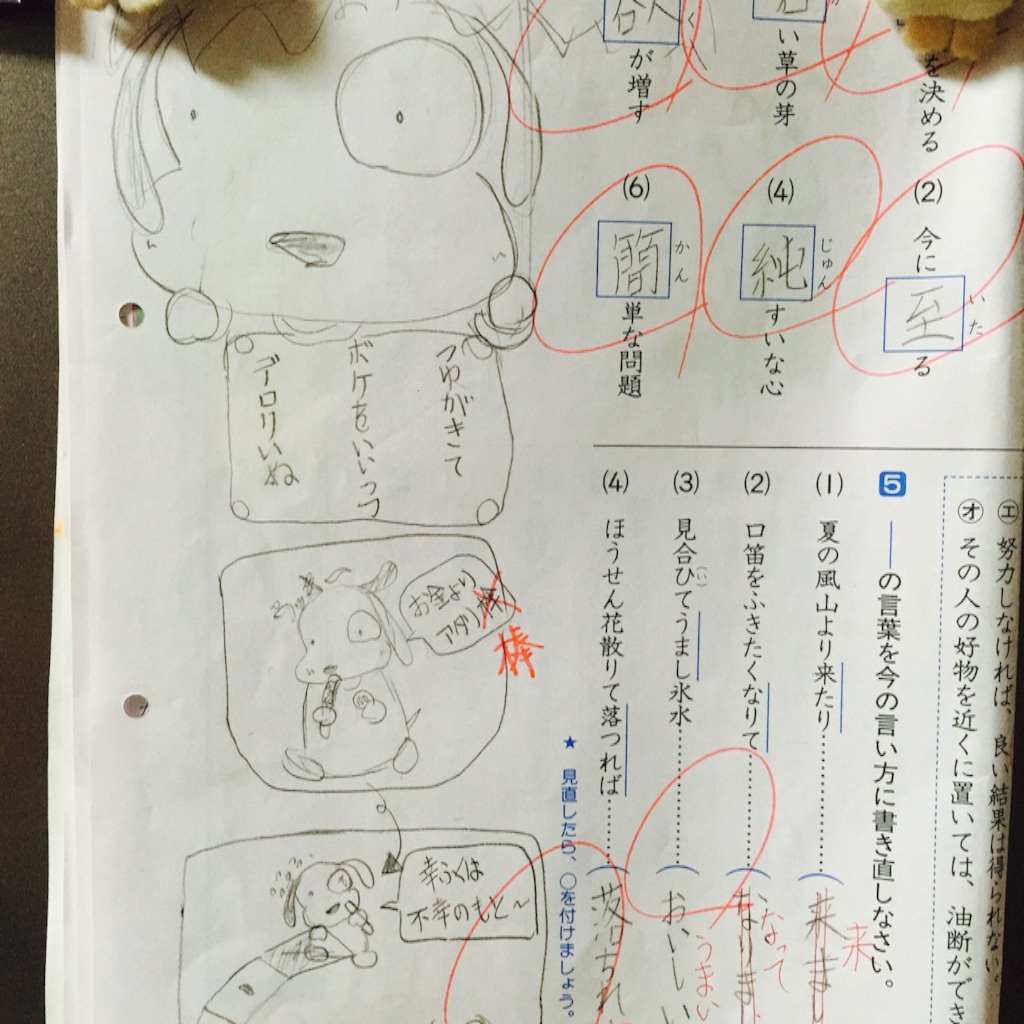 を決める
い草の芽
欲
く
が増す
(2) 今に至る
いた
(4) 純すいな心
じゅん
(6) 簡単な問題
かん
㋓ 努力しなければ、良い結果は得られない。
㋔ その人の好物を近くに置いては、油断ができ
5 ――の言葉を今の言い方に書き直しなさい。
(1) 夏の風山より来たり
来
(2) 口笛をふきたくなりて
なりま
なって
(3) 見合ひ(い)てうまし氷水
おいしい
うまい
(4) ほうせん花散りて落つれば
落ちれ
★ 見直したら、○を付けましょう。
つゆがきて
ボケをいいっつ
デーロリいぬ
お金より
アタリ
棒
幸ふくは
不幸のもと〜